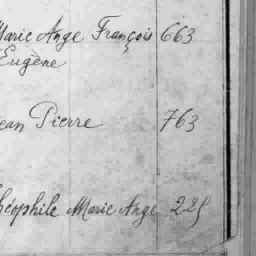 Marie Ange François 663
Eugène
Jean Pierre 763
Théophile Marie Ange 225